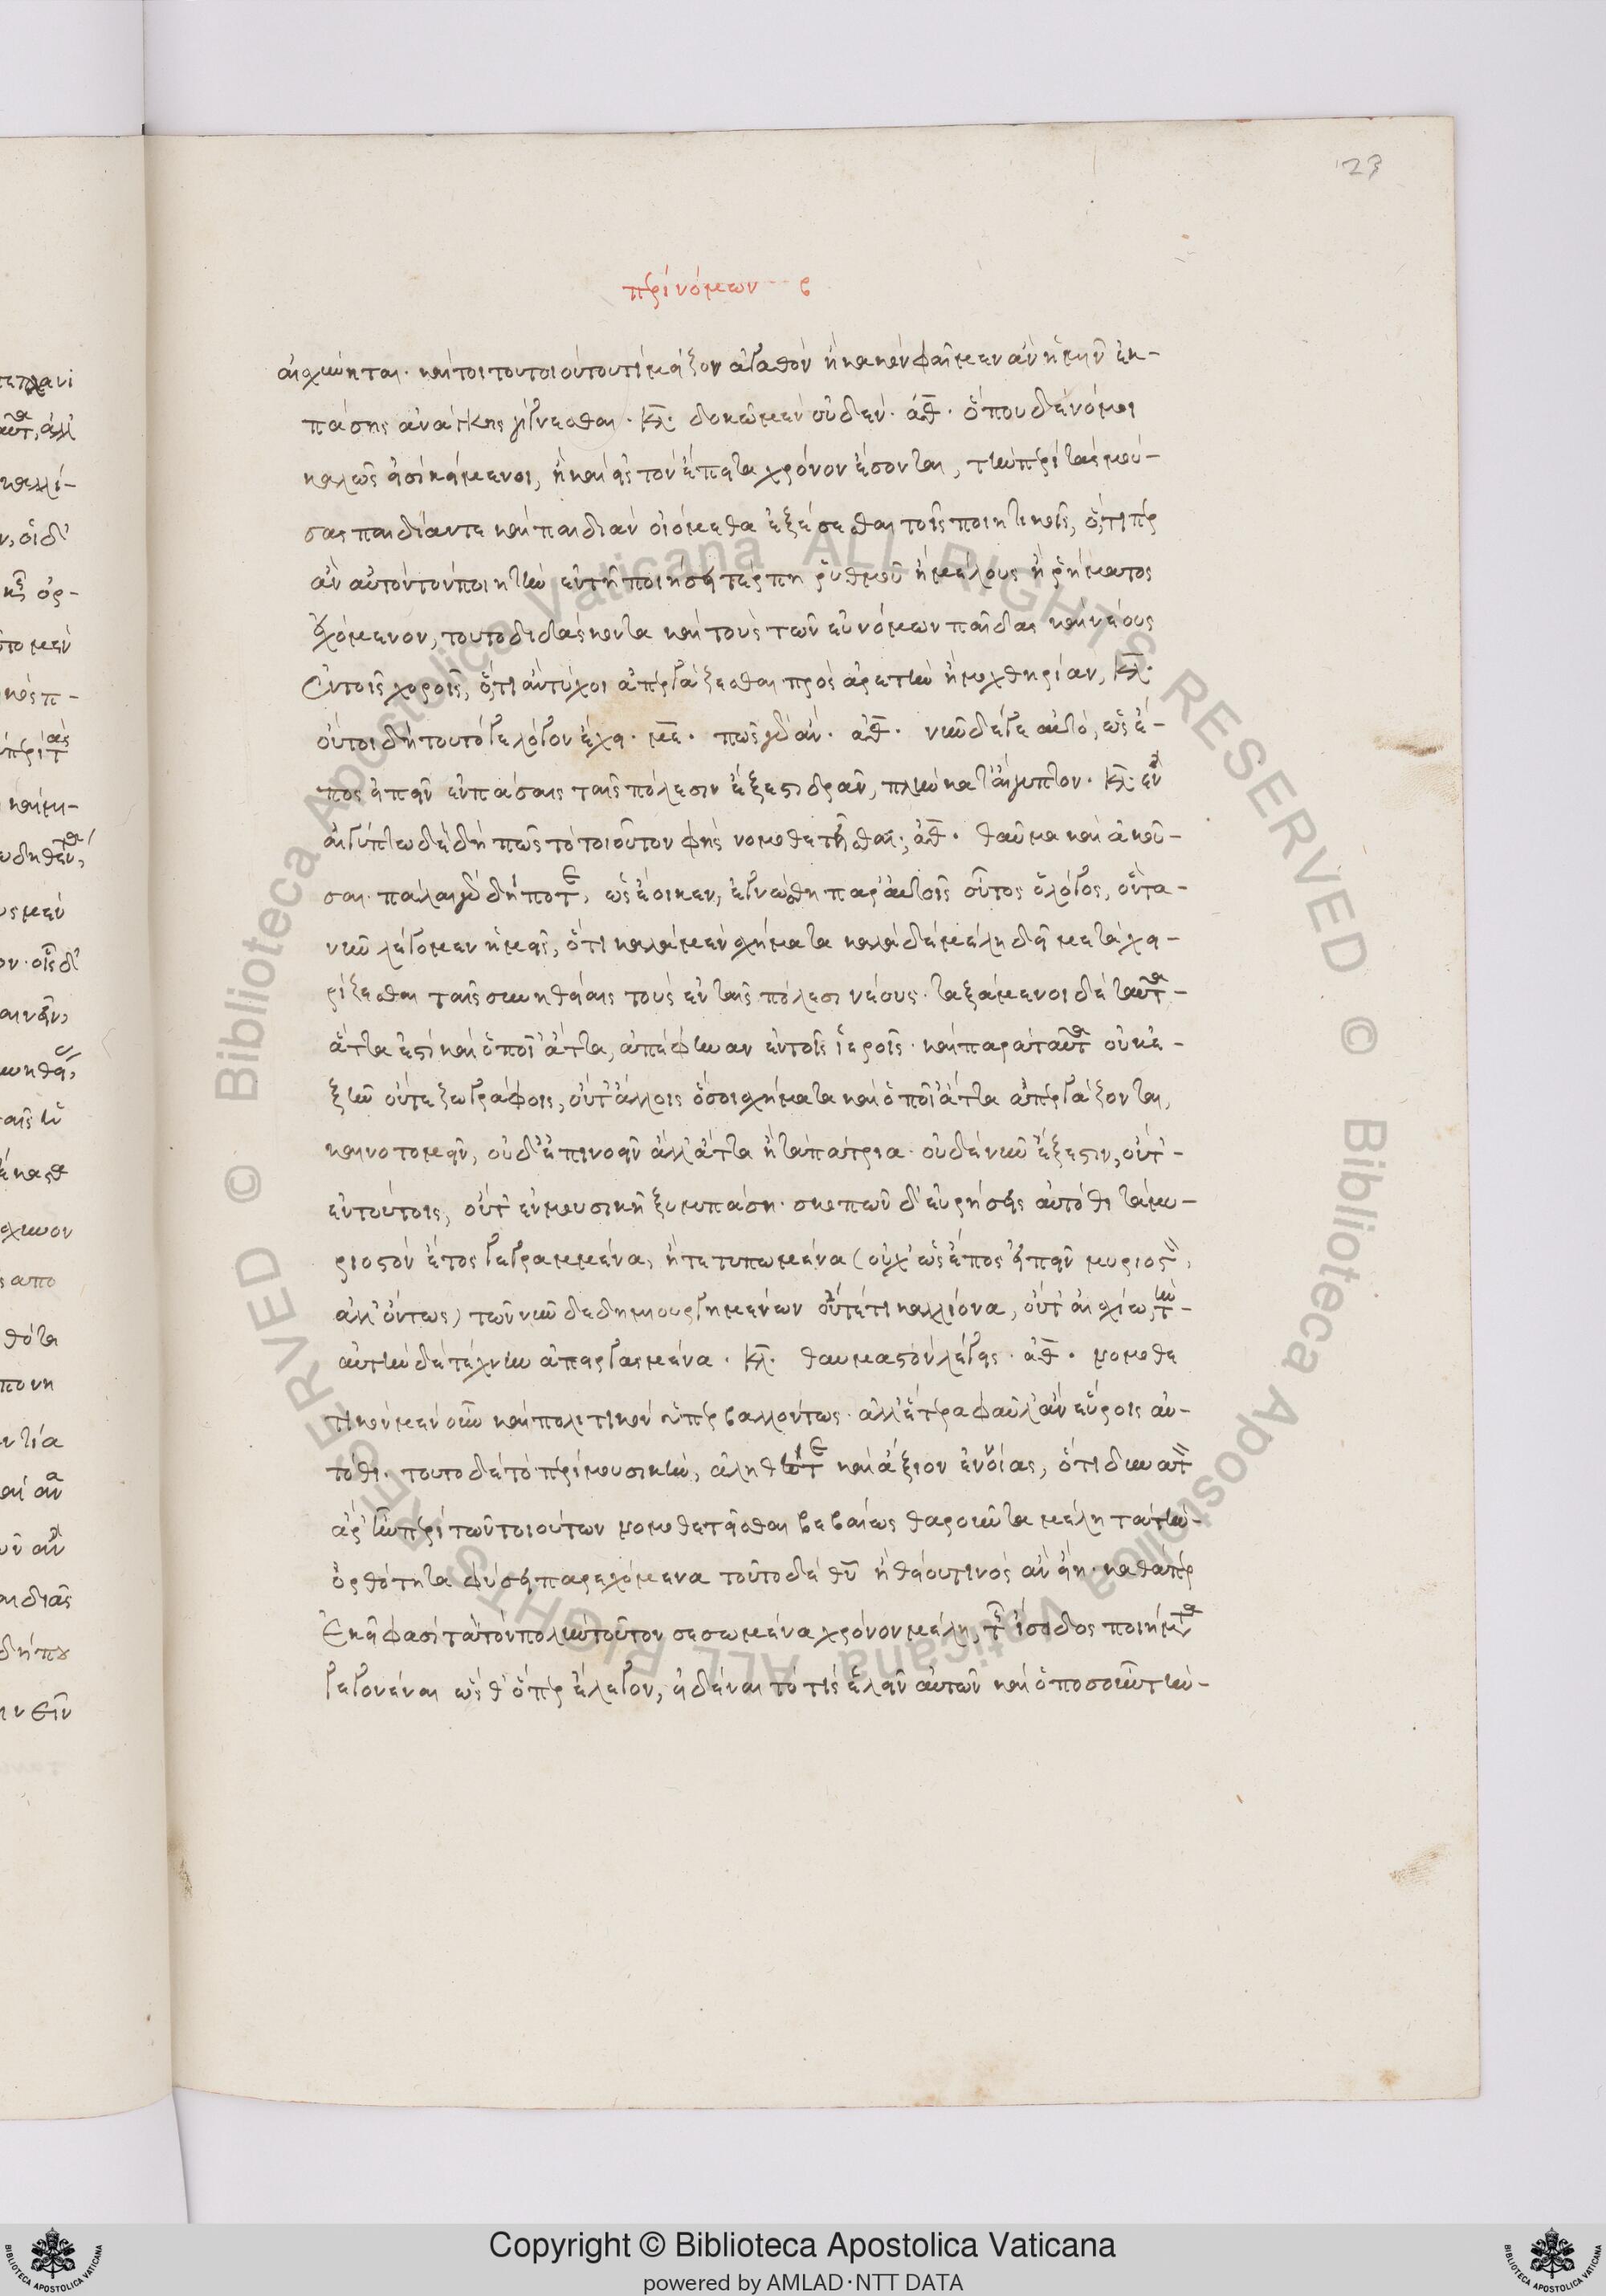 23
περὶ νόμων β
αἰσχύνηται. καίτοι τοῦ τοιούτου τί μεῖζον ἀγαθὸν ἢ κακὸν φαῖμεν ἂν ἡμῖν ἐκ-
πάσης ἀνάγκης γίγνεσθαι. κλ. δοκῶ μὲν οὐδέν. ἀθ. ὅπου δὲ νόμοι
καλῶς εἰσὶ κείμενοι, ἢ καὶ εἰς τὸν ἔπειτα χρόνον ἔσονται, τὴν περὶ τὰς μού-
σας παιδίαν τε καὶ παιδιὰν οἰόμεθα ἐξέσεσθαι τοῖς ποιητικοῖς, ὅ,τι περ
ἂν αὐτὸν τὸν ποιητὴν ἐν τῇ ποιήσει τέρπῃ ῥυθμοῦ ἢ μέλους ἢ ῥήματος
ἐχόμενον, τοῦτο διδάσκοντα καὶ τοὺς τῶν εὐνόμων παῖδας καὶ νέους
ἐν τοῖς χοροῖς, ὅ,τι ἂν τύχοι ἀπεργάζεσθαι πρὸς ἀρετὴν ἢ μοχθηρίαν, κλ.
οὔτοι δὴ τοῦτό γε λόγον ἔχει. με. πῶς γὰρ ἄν. ἀθ. νῦν δέ γε αὐτό, ὡς ἔ-
πος εἰπεῖν ἐν πάσαις ταῖς πόλεσιν ἔξεστι δρᾶν, πλὴν κατ' αἴγυπτον. κλ. ἐν
αἰγύπτῳ δὲ δὴ πῶς τὸ τοιοῦτον φῂς νομοθετῆσθαι; ἀθ. θαῦμα καὶ ἀκοῦ-
σαι. πάλαι γὰρ δήποτε, ὡς ἔοικεν, ἐγνώσθη παρ' αὐτοῖς οὗτος ὁ λόγος, ὃν τα-
νῦν λέγομεν ἡμεῖς, ὅτι καλὰ μὲν σχήματα καλὰ δὲ μέλη δεῖ μεταχει-
ρίζεσθαι ταῖς συνηθείαις τοὺς ἐν ταῖς πόλεσι νέους. ταξάμενοι δὲ ταῦτα
ἅττα ἐστὶ καὶ ὁποῖ' ἄττα, ἀπέφηναν ἐν τοῖς ἱεροῖς. καὶ παρὰ ταῦτα οὐκ ἐ-
ξῆν οὔτε ζωγράφοις, οὔτ' ἄλλοις ὅσοι σχήματα καὶ ὁποῖ' ἄττα ἀπεργάζονται,
καινοτομεῖν, οὐδ' ἐπινοεῖν ἀλλ' ἄττα ἢ τὰ πάτρια. οὐδὲ νῦν ἔξεστιν, οὔτ'-
ἐν τούτοις, οὔτ' ἐν μουσικῇ ξυμπάσῃ. σκοπῶν δ' εὑρήσεις αὐτόθι τὰ μυ-
ριοστὸν ἔτος γεγραμμένα, ἢ τετυπωμένα (οὐχ' ὡς ἔπος εἰπεῖν μυριοστὸν,
ἀλλ' ὄντως) τῶν νῦν δεδημιουργημένων οὔτέ τι καλλίονα, οὔτ' αἰσχίω, τὴν-
αὐτὴν δὲ τέχνην ἀπειργασμένα. κλ. θαυμαστὸν λέγεις. ἀθ. νομοθε
τικὸν μὲν οὖν καὶ πολιτικὸν ὑπερβαλλόντως. ἀλλ' ἕτερα φαῦλ' ἂν εὕροις αὐ-
τόθι. τοῦτο δὲ τὸ περὶ μουσικὴν, ἀληθές τε καὶ ἄξιον ἐννοίας, ὅτι δυνατὸν
ἄρ' ἦν περὶ τῶν τοιούτων νομοθετεῖσθαι βεβαίως θαρροῦντα μέλη τὰ τὴν-
ὀρθότητα φύσει παρεχόμενα τοῦτο δὲ θεοῦ ἢ θείου τινὸς ἂν εἴη. καθάπερ
ἐκεῖ φασὶ τὰ τὸν πολὺν τοῦτον σεσωμένα χρόνον μέλη, τῆς ἴσιδος ποιήματα
γεγονέναι ὥσθ' ὅπερ ἔλεγον, εἰ δύναι τό τις ἑλεῖν αὐτῶν καὶ ὁποσοῦν τὴν-
Copyright © Biblioteca Apostolica Vaticana
powered by AMLAD·NTT DATA